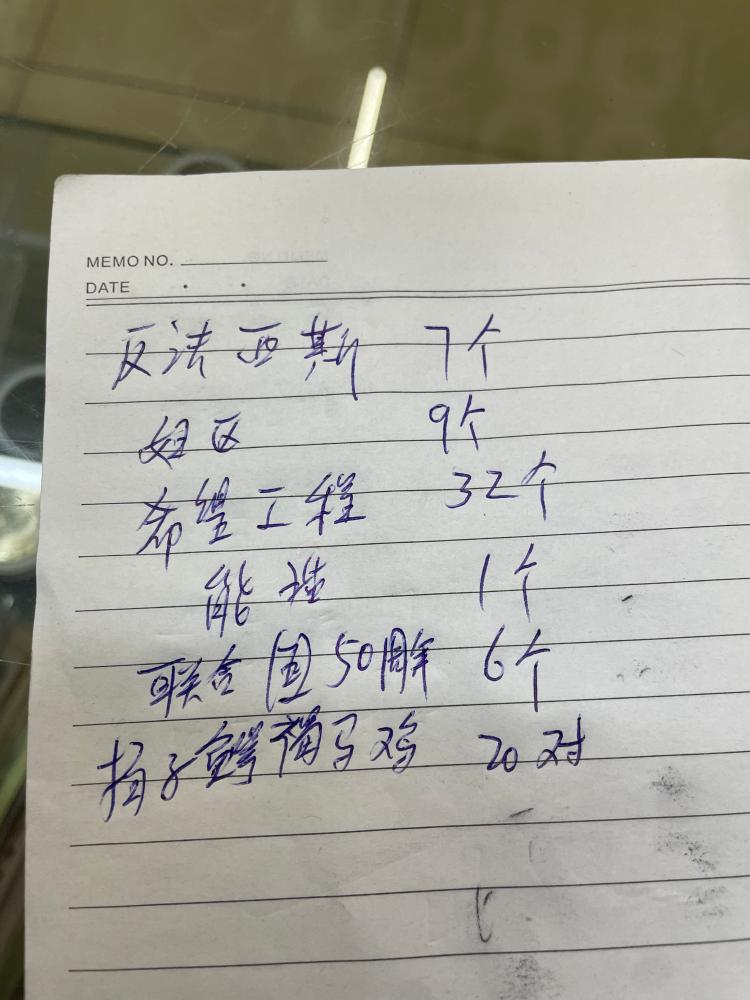 MEMO NO.
DATE
反法西斯 7个
9个
希望工程 32个
1个
联合国50周年 6个
扬子鳄褐马鸡 20对